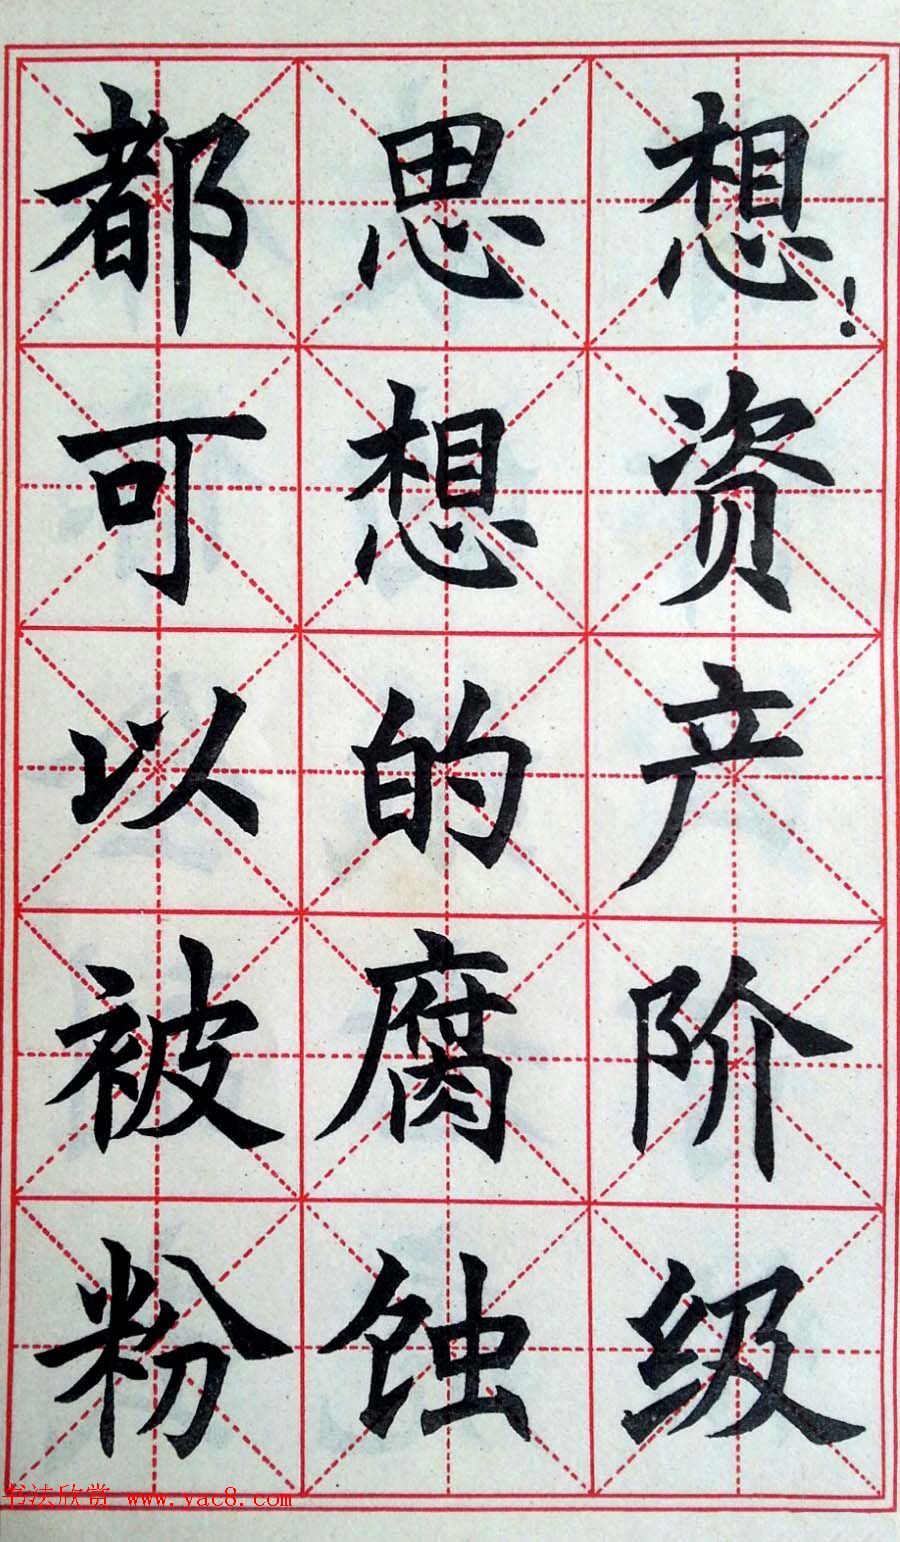 想！资产阶级
思想的腐蚀
都可以被粉
书法欣赏 www.yac8.com